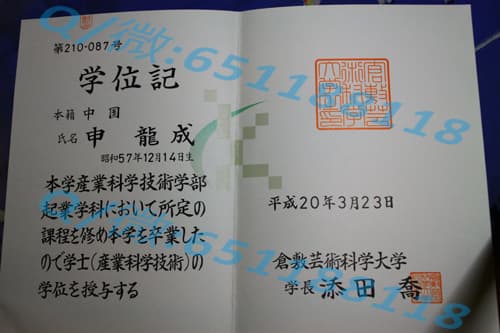 第210-087号
学位記
本籍 中国
氏名 申 龍 成
昭和57年12月14日生
本学産業科学技術学部
起業学科において所定の
課程を修め本学を卒業した
ので学士(産業科学技術)の
学位を授与する
平成20年3月23日
倉敷芸術科学大学
学長 添田 喬
Q/微: